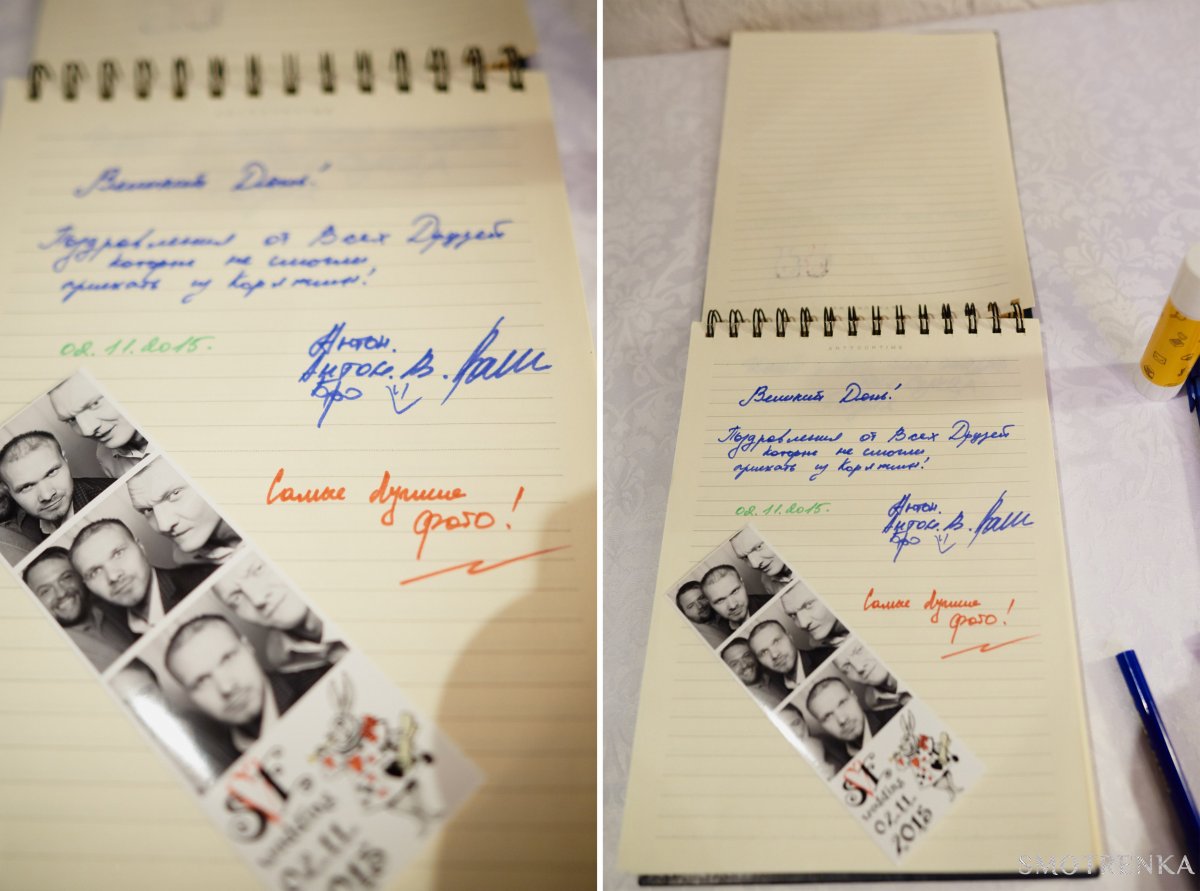 Великий День!
Поздравления от Всех Друзей
которые не смогли
приехать из Коряжмы!
02.11.2015.
Антон.
Антон. В.
Бро
Самые лучшие
фото!
wedding
02.11.
2015
Великий День!
Поздравления от Всех Друзей
которые не смогли
приехать из Коряжмы!
02.11.2015.
Антон.
Антон. В.
Бро
Самые лучшие
фото!
wedding
02.11.
2015
SMOTRENKA